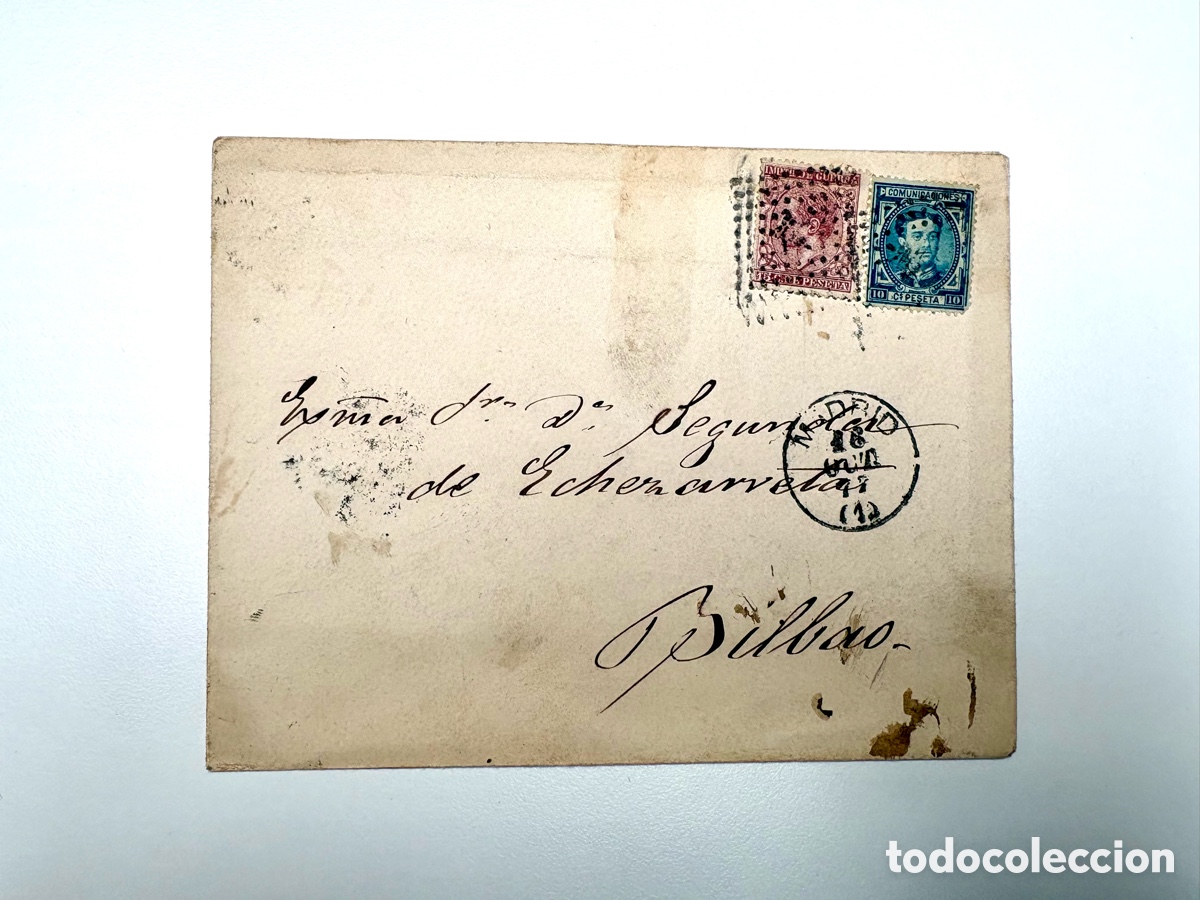 IMPTO DE GUERRA
15 CS DE PESETA
COMUNICACIONES
10 CS PESETA 10
Exma Sra Da Segunda
de Echezarreta
Bilbao.
MADRID
16
77
(1)
todocoleccion